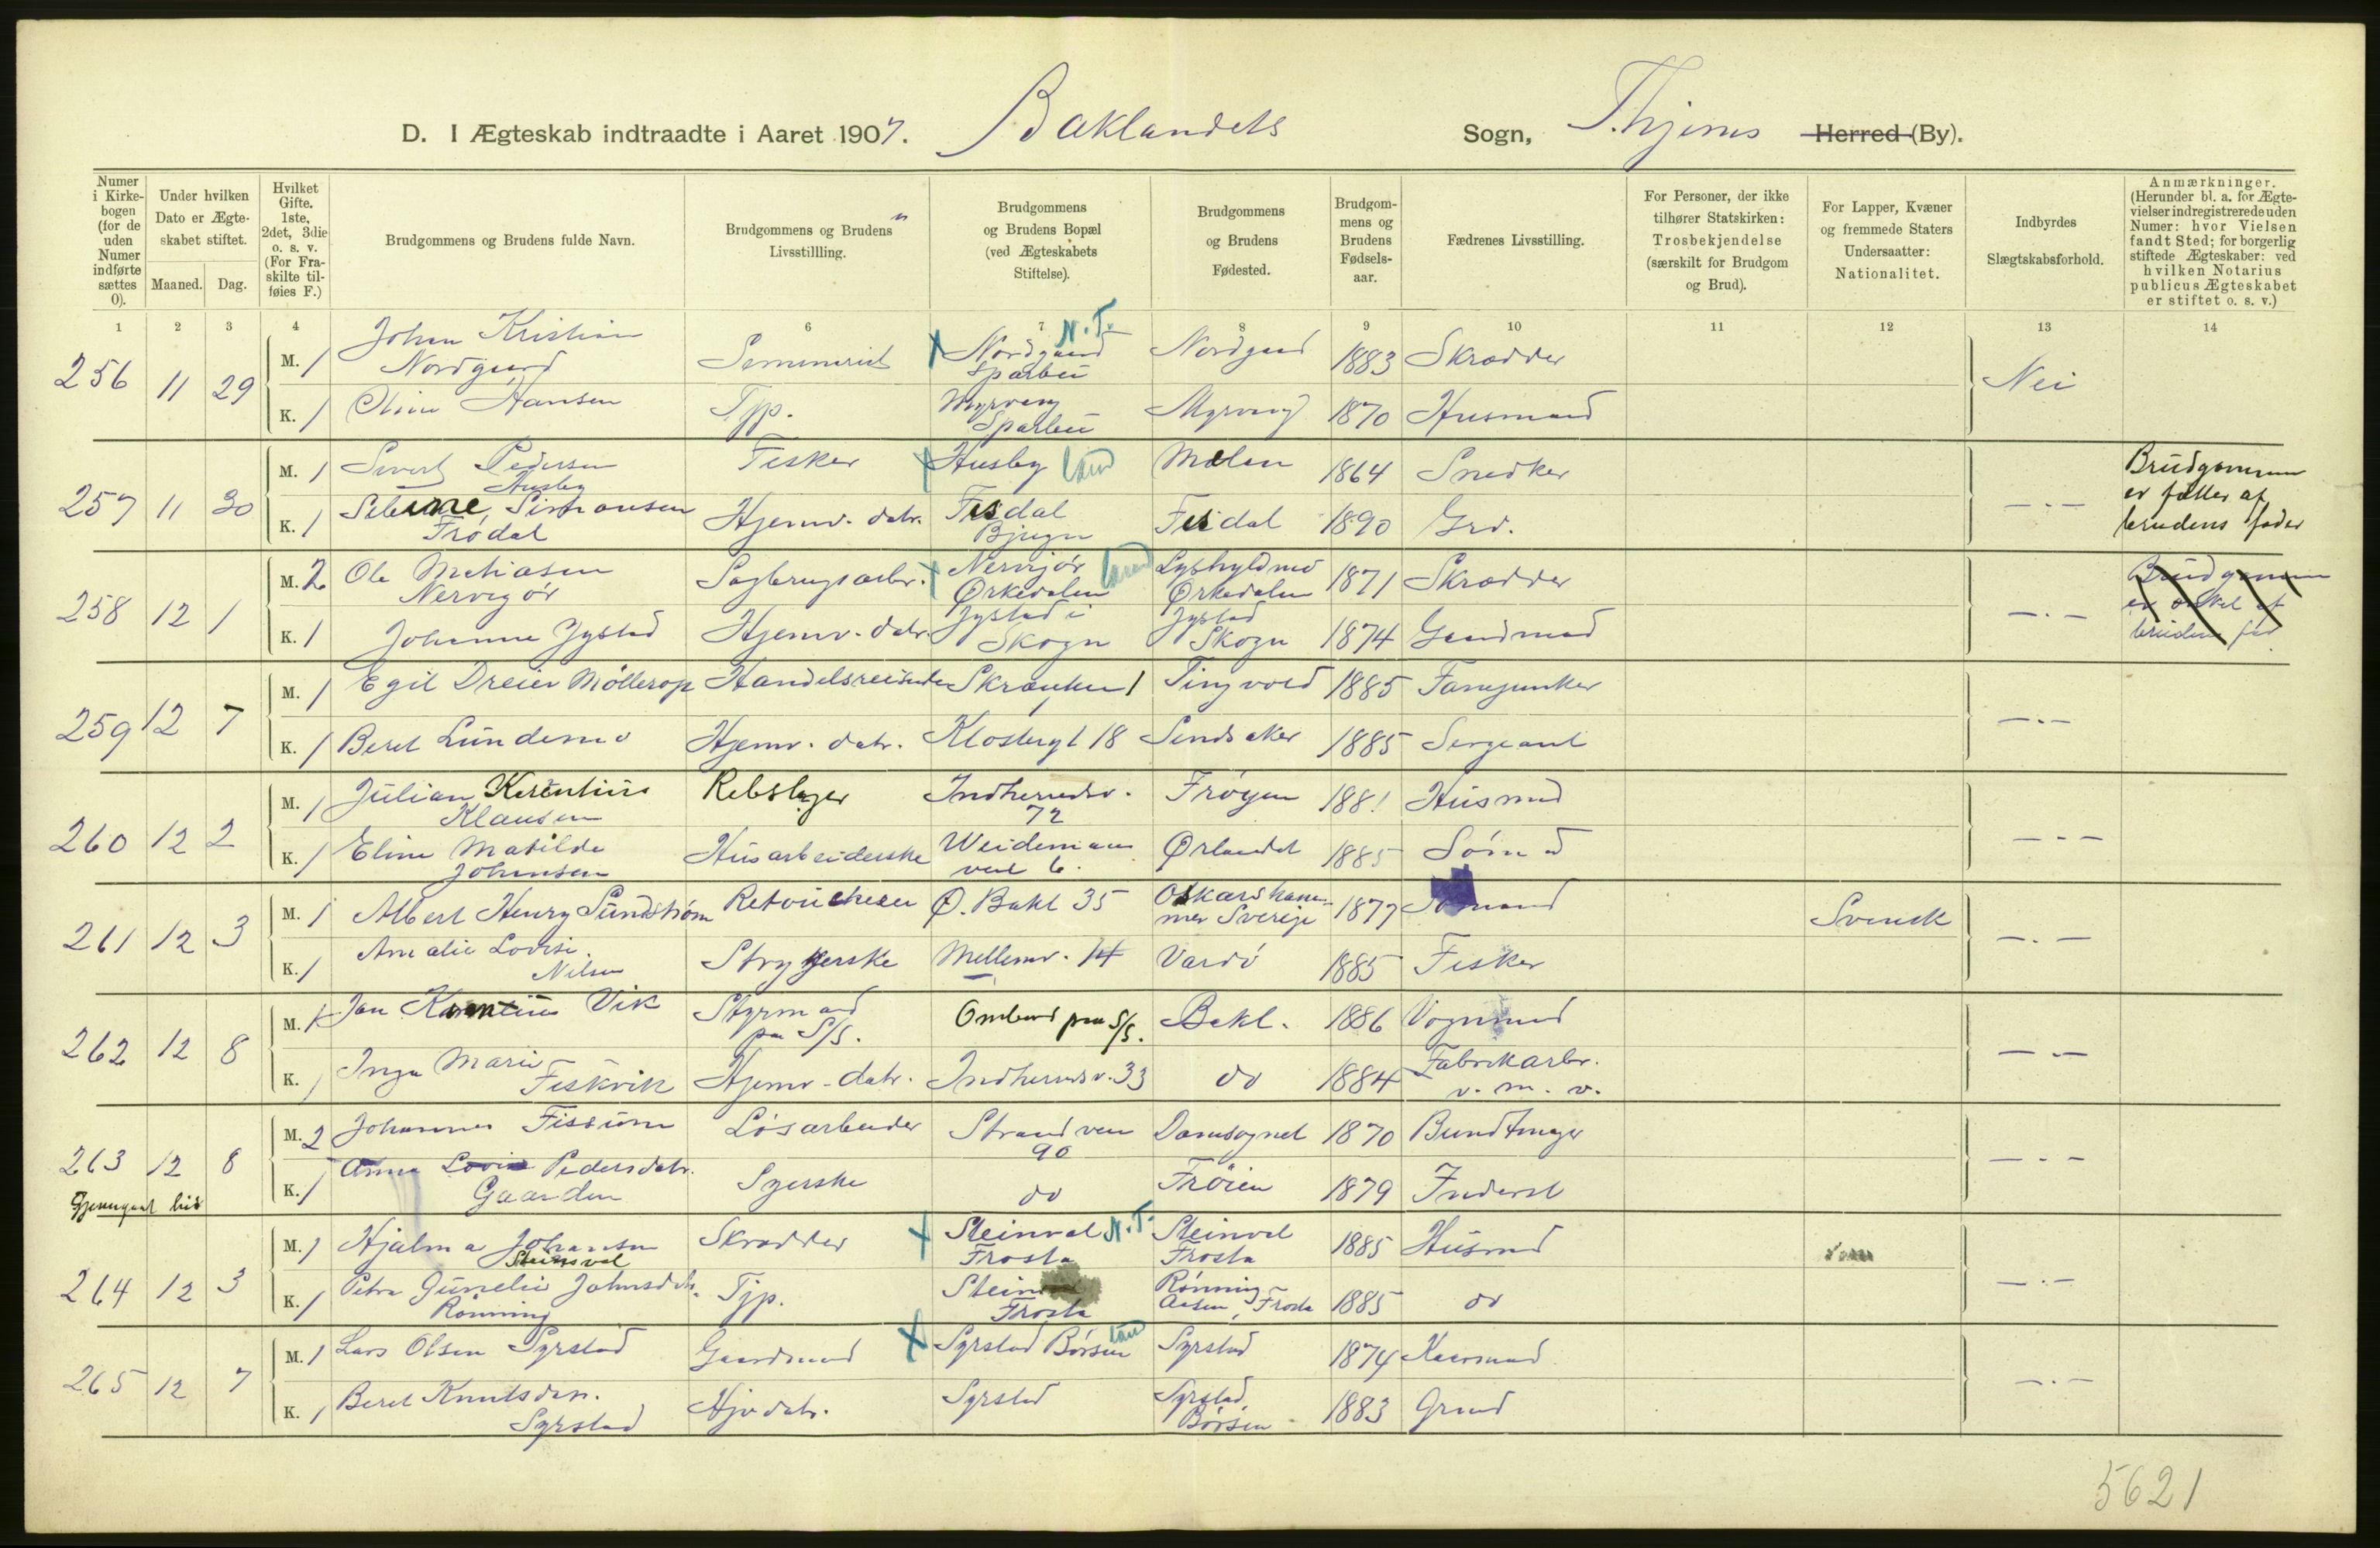 D. I Ægteskab indtraadte i Aaret 1907. Baklandets Sogn, Thjems Herred (By).
Numer i Kirkebogen (for de uden Numer indførte sættes 0).
Under hvilken Dato er Ægteskabet stiftet.
Maaned. Dag.
Hvilket Gifte. 1ste, 2det, 3die o. s. v. (For Fraskilte tilføies F.)
Brudgommens og Brudens fulde Navn.
Brudgommens og Brudens Livsstillling.
Brudgommens og Brudens Bopæl (ved Ægteskabets Stiftelse).
Brudgommens og Brudens Fødested.
Brudgommens og Brudens Fødselsaar.
Fædrenes Livsstilling.
For Personer, der ikke tilhører Statskirken: Trosbekjendelse (særskilt for Brudgom og Brud).
For Lapper, Kvæner og fremmede Staters Undersaatter: Nationalitet.
Indbyrdes Slægtskabsforhold.
Anmærkninger. (Herunder bl. a. for Ægtevielser indregistrerede uden Numer: hvor Vielsen fandt Sted; for borgerlig stiftede Ægteskaber: ved hvilken Notarius publicus Ægteskabet er stiftet o. s. v.)
1 2 3 4 6 7 8 9 10 11 12 13 14
256 11 29 M. 1 Johan Kristian Nordgaard Seminarist Nordgaard Sparbu N.T. Nordgaard 1883 Skrædder Nei
K. 1 Oline Hansen Tjp. Myrvang Sparbu Myrvang 1870 Husmand
257 11 30 M. 1 Sivert Pedersen Husby Fisker Husby land Melan 1864 Snedker — . — Brudgommen er fætter af brudens fader
K. 1 Simonsen Frødal Hjemv. datr. Bjugn 1890 Grd.
258 12 1 M. 2 Ole Mathiasen Sagbrugsarbr. Ørkedalen land Ørkedalen 1871 Skrædder — . — Brudgommen er onkel af
K. 1 Johanne Jystad Hjemv. datr. Jystad i Skogn Jystad Skogn 1874 Gaardmand
259 12 7 M. 1 Egil Dreier Møllerop Handelsreisende 1 Tingvold 1885 Fanejunker — . —
K. 1 Beret Lundemo Hjemv. datr. Klostergt 18 1885 Sergeant
260 12 2 M. 1 Julian Klausen Rebslager Indherredsv. 72 Frøyen 1881 Husmd — . —
K. 1 Eline Matilde Johansen Husarbeiderske Weidemans vei 6. Ørlandet 1885 Sømd
261 12 3 M. 1 Albert Henry Sundstrøm Retoucheur Ø. Bakl 35 Oskarshammer Sverije 1877 Svensk — . —
K. 1 Amalie Lovise Nilsen Strygerske Mellemv. 14 Vardö 1885 Fisker
262 12 8 M. 1 Jan Vik Styrmand pa S/S. Ombord paa S/S. Bakl. 1886 Vognmand — . —
K. 1 Inga Marie Fiskvik Hjemv. datr. Indherredsv. 33 do 1884 Fabrikarbr. v. m. v.
263 12 8 M. 2 Johannes Fissum Løsarbeider Strandveien 90 Domsognet 1870 Bundtmager — . —
K. 1 Anna Lovise Pedersdatr. Gaarden Syerske do Frøien 1879 Inderst
Gjennemgaat hid
264 12 3 M. 1 Hjalmar Johansen Steinvol Skrædder Steinvol Frosta N.T. Steinvol Frosta 1885 Husmd — . —
K. 1 Petra Gunelie Johnsdatr. Rønning Tjp. Frosta Rønning Aasen, Frosta 1885 do
265 12 7 M. 1 Lars Olsen Syrstad Gaardmand Syrstad Børsen land Syrstad 1874 — . —
K. 1 Beret Knutsdtr. Syrstad Hjvdatr. Syrstad Syrstad Børsen 1883
5621